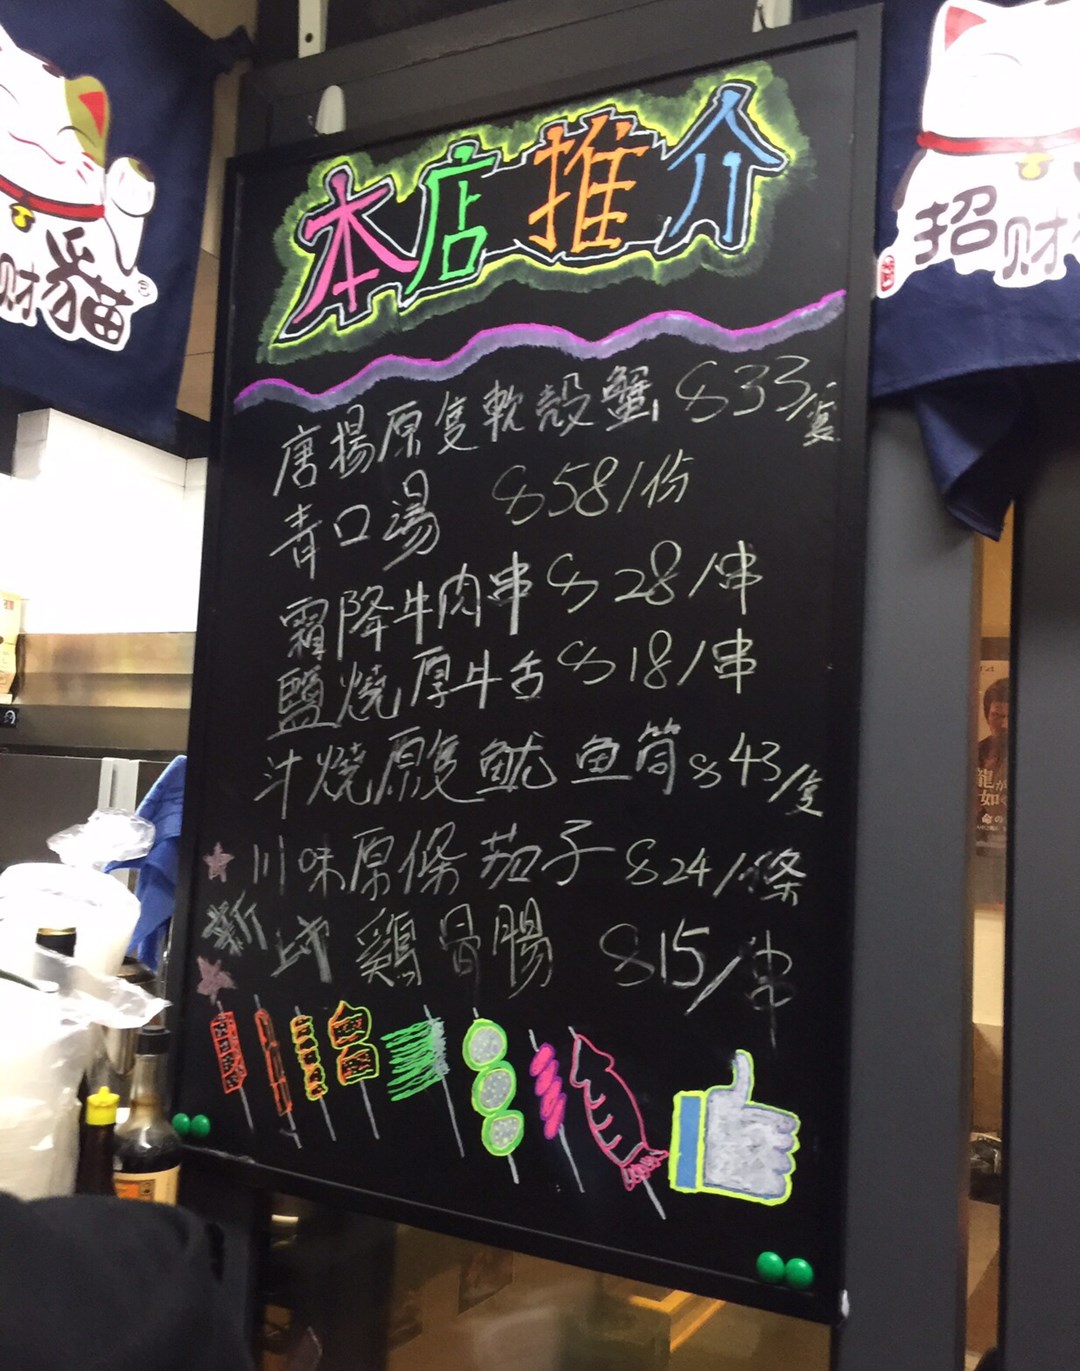 本店推介
唐揚原隻軟殼蟹 $33/隻
青口湯 $58/份
霜降牛肉串 $28/串
鹽燒厚牛舌 $18/串
汁燒原隻魷魚筒 $43/隻
川味原條茄子 $24/條
新上市 雞骨腸 $15/串
财貓
招财
龍が
如く
命の